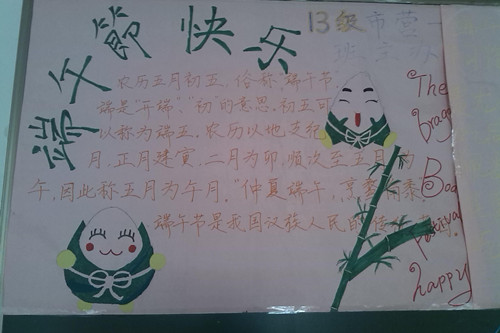 端午节快乐
13级市营一
班主办
农历五月初五,俗称"端午节"
端是"开端"、"初"的意思。初五可
以称为端五。农历以地支纪
月,正月建寅,二月为卯,顺次至五月为
午,因此称五月为午月。"仲夏端午,烹鹜角黍
端午节是我国汉族人民的传
The
Dragon
Boat
Festival
happy